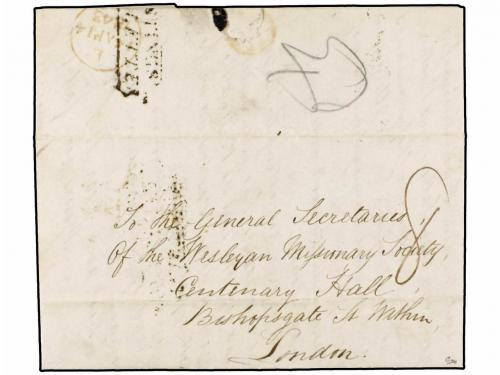 LETTER
8
To the General Secretaries,
Of the Wesleyan Missionary Society,
Centenary Hall,
Bishopsgate St Within,
London.